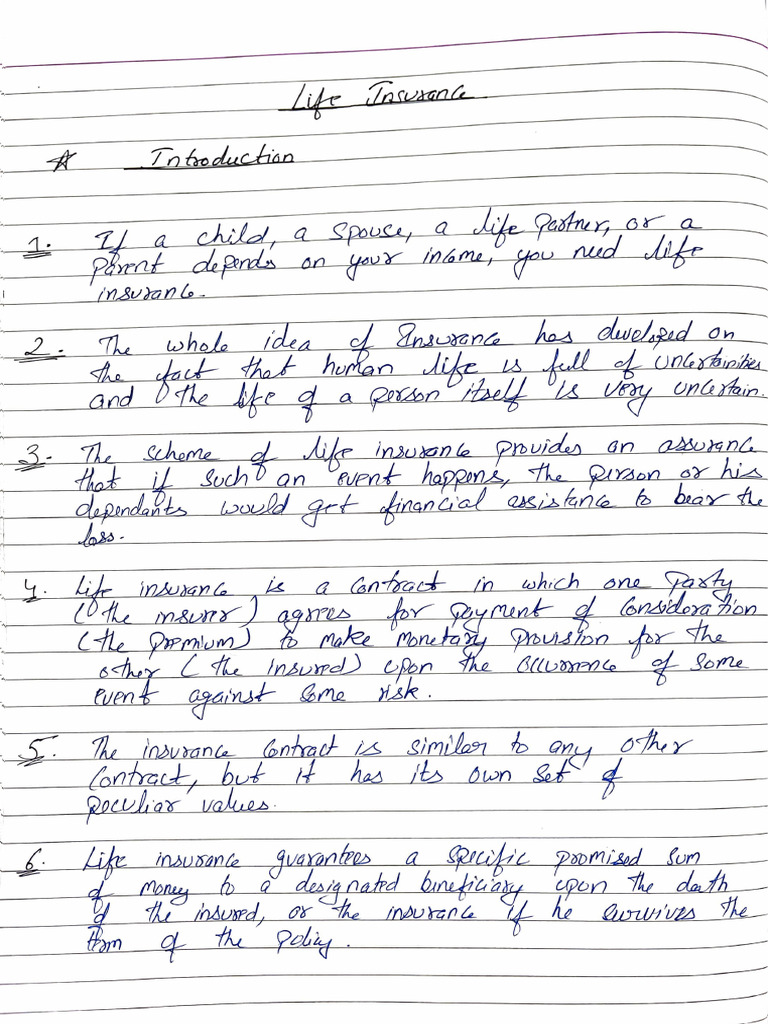 Life Insurance
☆ Introduction
1. If a child, a spouse, a life partner, or a
parent depends on your income, you need life
insurance.
2. The whole idea of Insurance has developed on
the fact that human life is full of uncertainities
and the life of a person itself is very uncertain.
3. The scheme of life insurance provides an assurance
that if such an event happens, the person or his
dependants would get financial assistance to bear the
loss.
4. Life insurance is a contract in which one party
(the insurer) agrees for payment of consideration
(the premium) to make monetary provision for the
other (the insured) upon the occurrence of some
event against some risk.
5. The insurance contract is similar to any other
contract, but it has its own set of
peculiar values.
6. Life insurance guarantees a specific promised sum
of money to a designated beneficiary upon the death
of the insured, or the insurance if he survives the
term of the policy.